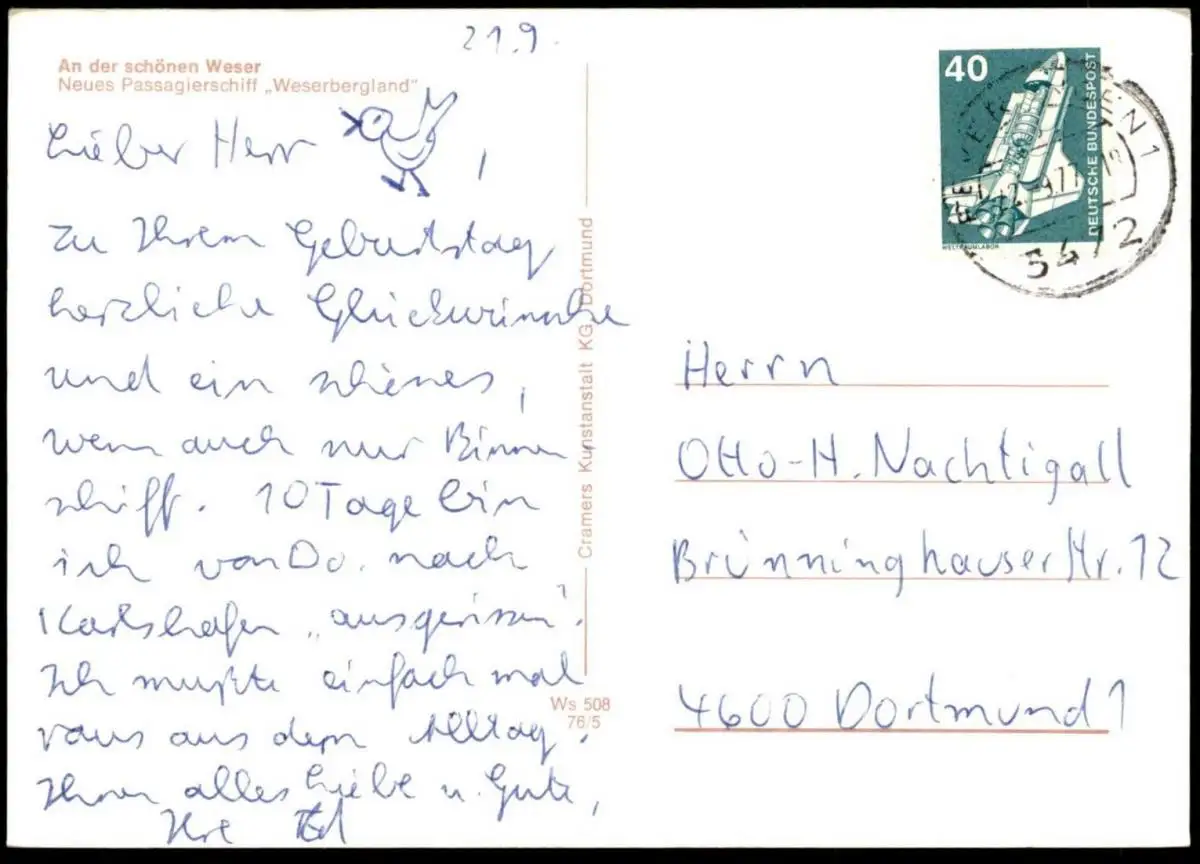 21.9.
An der schönen Weser
Neues Passagierschiff „Weserbergland"
Lieber Herr ,
zu Ihrem Geburtstag
herzliche Glückwünsche
und ein schönes,
wenn auch nur Binnen
schiff. 10 Tage bin
ich von Do. nach
Karlshafen „ausgerissen".
Ich mußte einfach mal
raus aus dem Alltag.
Ihnen alles Liebe u. Gute,
Ihre
Cramers Kunstanstalt KG Dortmund
Ws 508
76/5
40
DEUTSCHE BUNDESPOST
WELTRAUMLABOR
9.77
3472
Herrn
Otto-H. Nachtigall
Brünninghauser Str. 12
4600 Dortmund 1